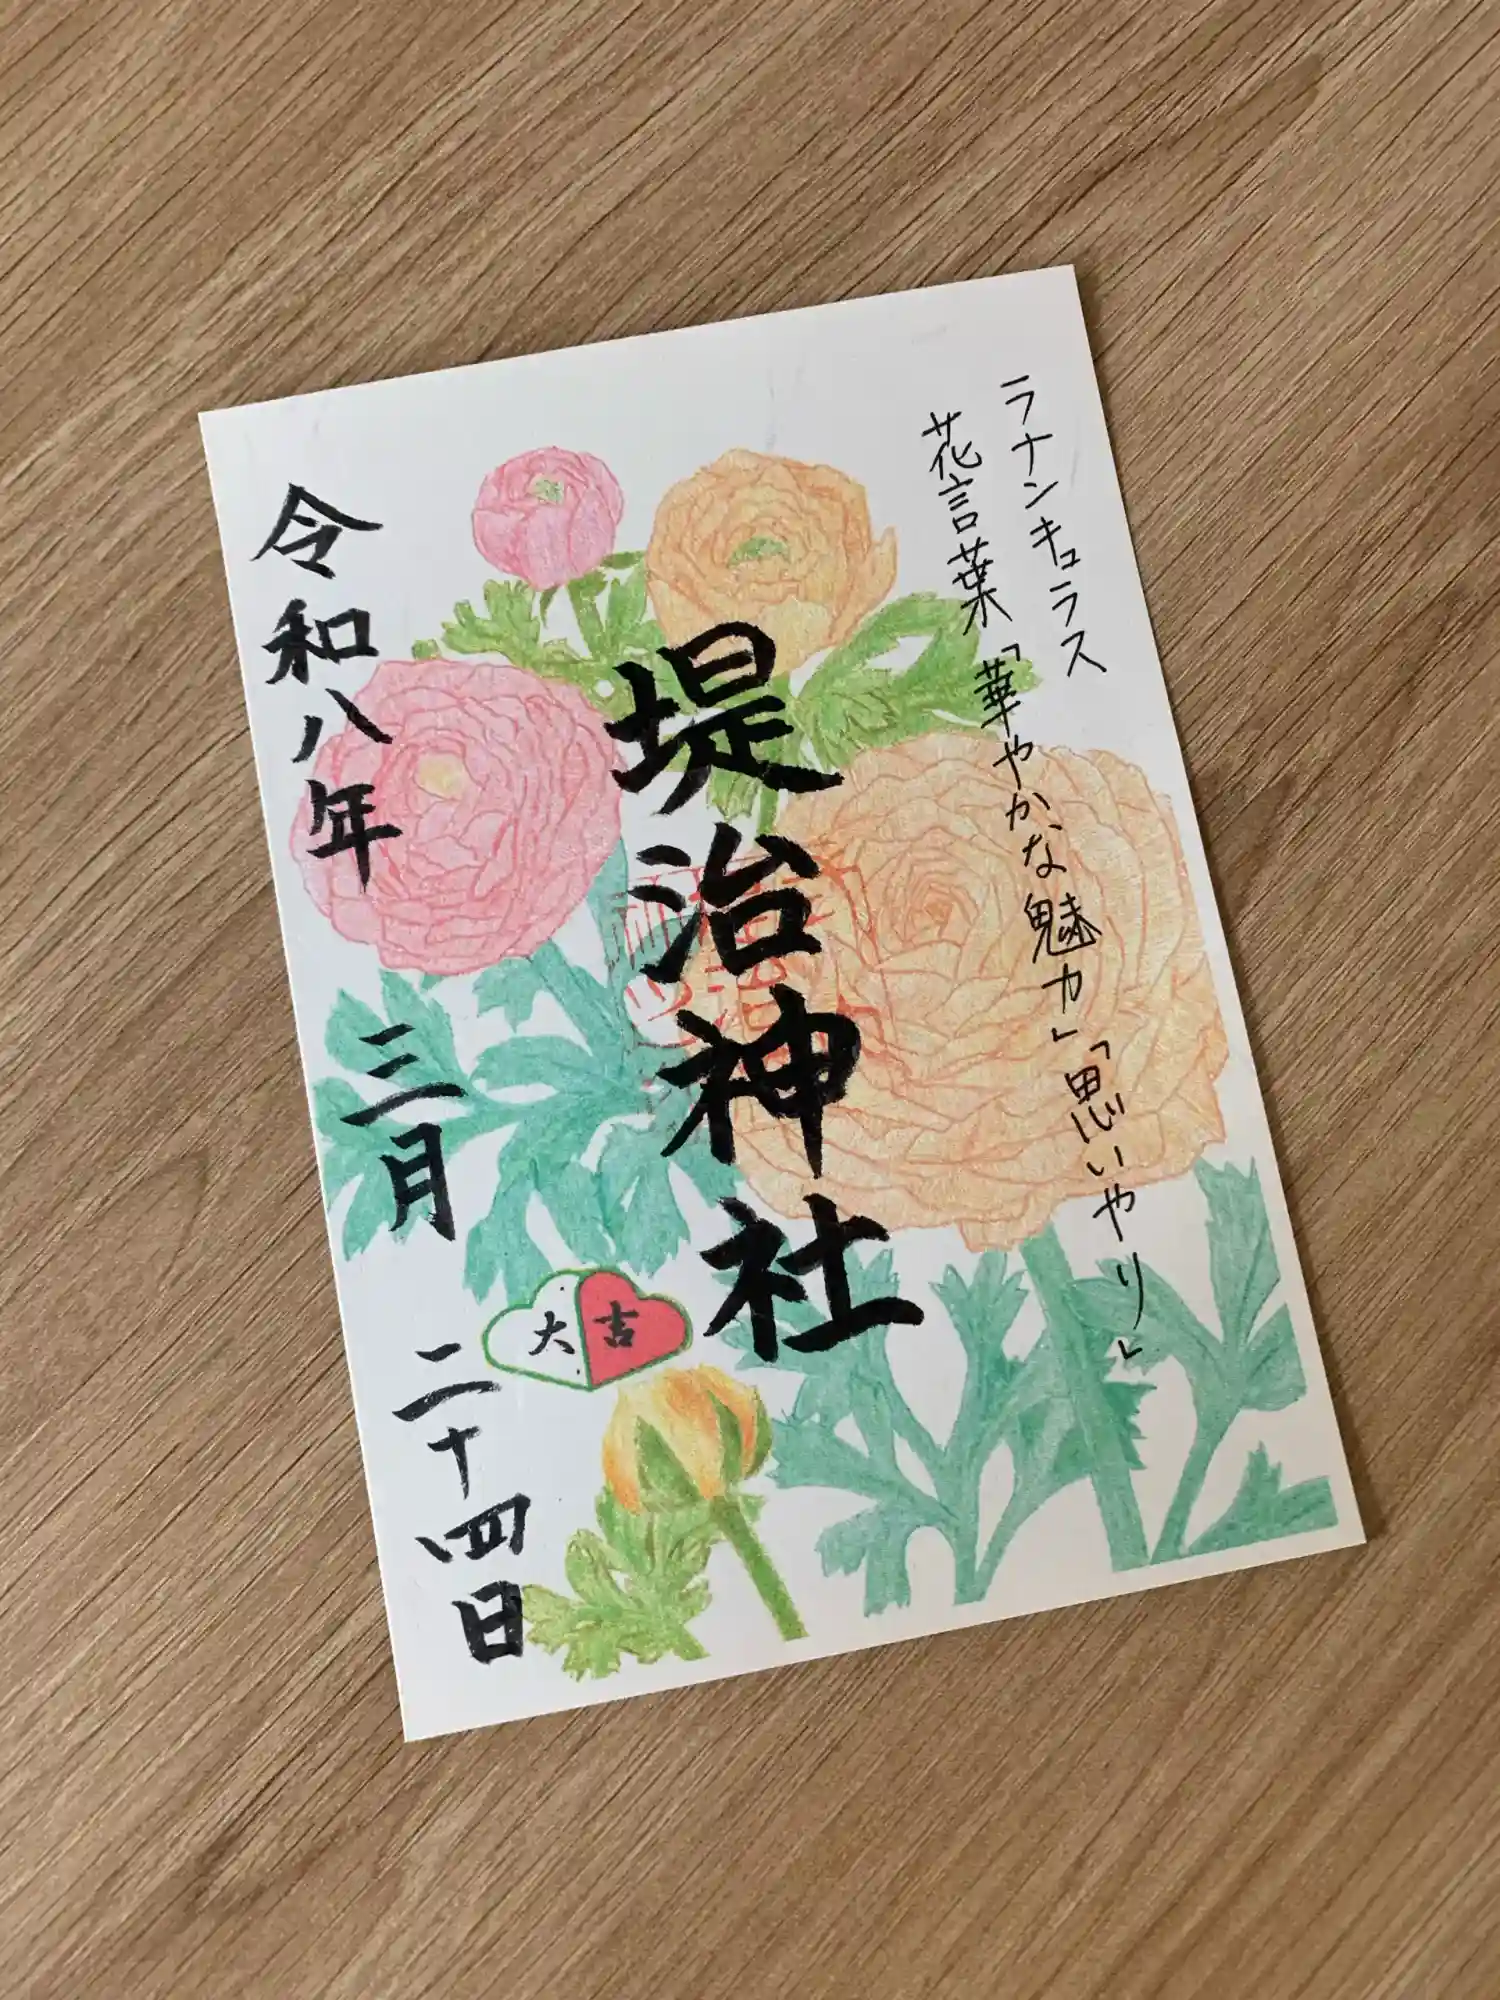 ラナンキュラス
花言葉「華やかな魅力」「思いやり」
堤治神社
大吉
令和八年 三月 二十四日